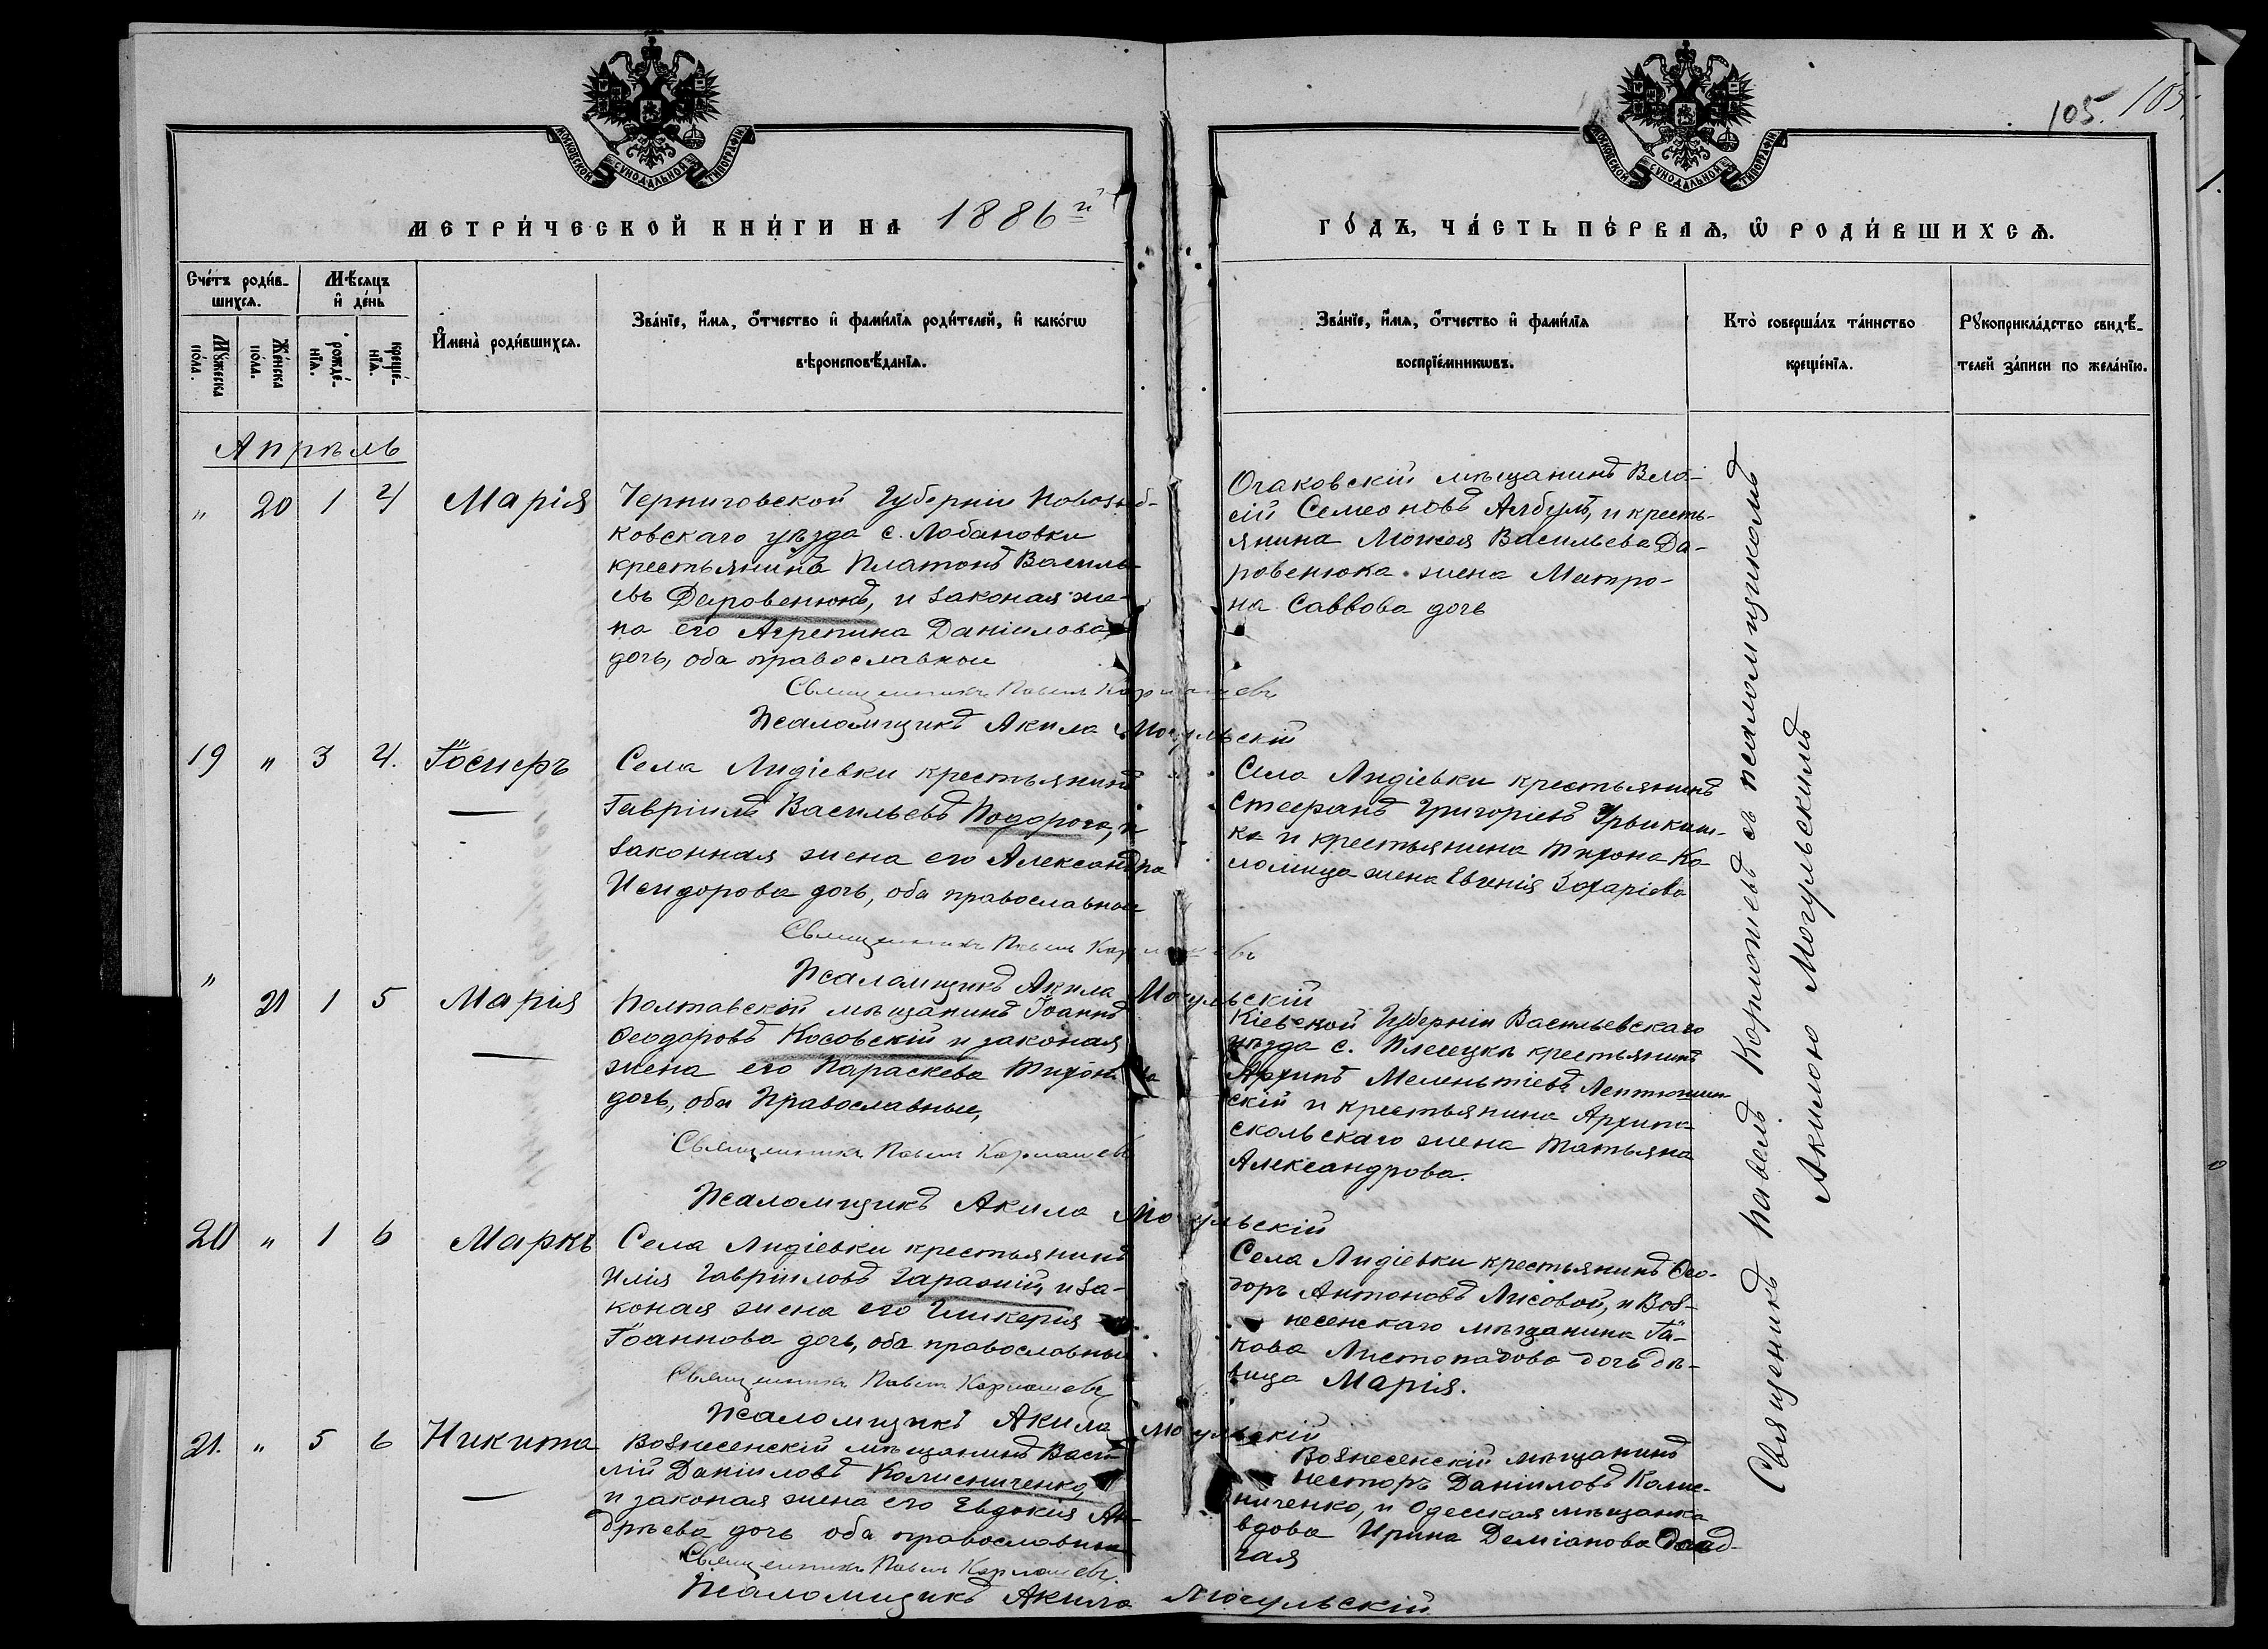 105. 105.
МОСКОВСКОЙ СУНОДАЛЬНОЙ ТИПОГРАФІИ
МОСКОВСКОЙ СУНОДАЛЬНОЙ ТИПОГРАФІИ
МЕТРИ́ЧЕСКОЙ КНИ́ГИ НА 1886й
ГО́ДЪ, ЧА́СТЬ ПЕ́РВАѦ, Ѡ РОДИ́ВШИХСѦ.
Сче́тъ роди́в-
шихсѧ.
Мѣ́сѧцъ
и҆ де́нь
Мꙋ́жеска
по́ла.
Же́нска
по́ла.
рожде́-
нїѧ.
креще́-
нїѧ.
И҆мена̀ роди́вшихсѧ.
Зва́нїе, и҆́мѧ, ѻ҆́тчество и҆ фами́лїѧ роди́телей, и҆ како́гѡ
вѣроисповѣ́данїѧ.
Зва́нїе, и҆́мѧ, ѻ҆́тчество и҆ фами́лїѧ
воспрїе́мникѡвъ.
Кто̀ соверша́лъ та́инство
креще́нїѧ.
Рꙋкоприкла́дство свидѣ́-
телей за́писи по жела́нїю.
Апрѣль
" 20 1 4 Марія
Черниговской Губерніи Новозыб-
ковскаго уѣзда с. Лобановки
крестьянинъ Платонъ Василь-
евъ Деровенюкъ, и законая же-
на его Агрепина Даніилова
дочь, оба православнои
Священникъ Павелъ Кармашевъ
Псаломщикъ Акила Могульскій
Очаковскій мѣщанинъ Вла-
сій Семеоновъ Албулъ, и кресть-
янина Моисея Васильева Да-
ровенюка жена Матро-
на Саввова дочь
19 " 3 4. Іосифъ
Села Лидіевки крестьянинъ
Гавріилъ Васильевъ Подорога, и
законная жена его Александра
Исидорова дочь, оба православнои
Священникъ Павелъ Кармашевъ
Псаломщикъ Акила Могульскій
Села Лидіевки крестьянинъ
Стефанъ Григоріевъ
ка и крестьянина Тихона Ко-
ломійца жена Евгенія Захаріева
" 21 1 5 Марія
Полтавскій мѣщанинъ Іоаннъ
Ѳеодоровъ Косовскій и законая
жена его Параскева Тихонова
дочь, оба Православные,
Священникъ Павелъ Кармашевъ
Псаломщикъ Акила Могульскій
Кіевской Губерніи Васильевскаго
уѣзда с. Плесецки крестьянинъ
Архипъ Меленьтіевъ
скій и крестьянина Архипа
скольскаго жена Татьяна
Александрова.
20 " 1 6 Маркъ
Села Лидіевки крестьянинъ
Илія Гавріиловъ Гаражій, и за-
коная жена его Гликерія
Іоаннова дочь, оба православныи
Священникъ Павелъ Кармашевъ
Псаломщикъ Акила Могульскій
Села Лидіевки крестьянинъ Ѳео-
доръ Антоновъ Лисовой, и Воз-
несенскаго мѣщанина Іа-
кова Листопадова дочь дѣ-
вица Марія.
21. " 5 6 Никита
Вознесенскій мѣщанинъ Васи-
лій Даніиловъ Колисниченко,
и законая жена его Евдокія Ан-
дрѣева дочь оба православныи
Священникъ Павелъ Кармашевъ.
Псаломщикъ Акила Могульскій
Вознесенскій мѣщанинъ
Несторъ Даніиловъ Колис-
ниченко, и Одесская мѣщанка
вдова Ирина Деміанова
Священникъ Павелъ Кармашевъ съ псаломщикомъ
Акилою Могульскимъ